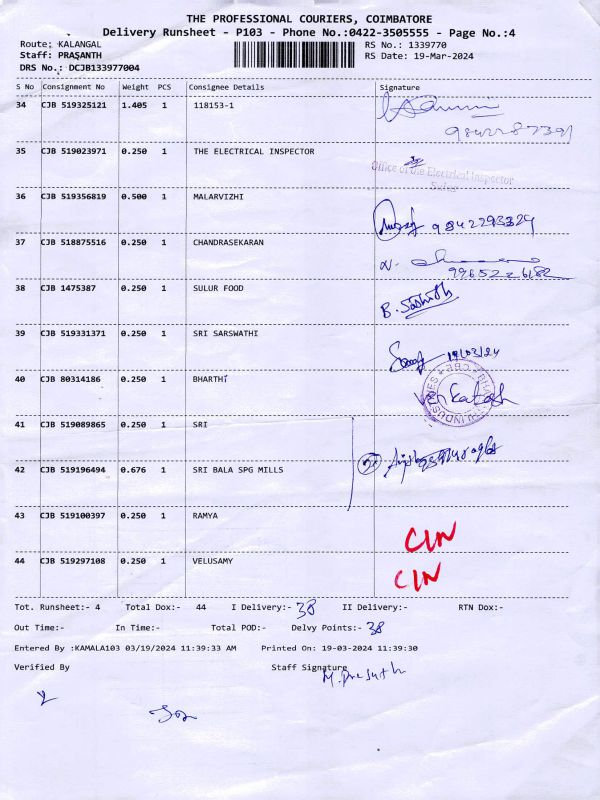 THE PROFESSIONAL COURIERS, COIMBATORE
Delivery Runsheet - P103 - Phone No.:0422-3505555 - Page No.:4
Route: KALANGAL RS No.: 1339770
Staff: PRASANTH RS Date: 19-Mar-2024
DRS No.: DCJB133977004
S No Consignment No Weight PCS Consignee Details Signature
34 CJB 519325121 1.405 1 118153-1
9842287391
35 CJB 519023971 0.250 1 THE ELECTRICAL INSPECTOR
Office of the Electrical Inspector
Sulur
36 CJB 519356819 0.500 1 MALARVIZHI
9842293324
37 CJB 518875516 0.250 1 CHANDRASEKARAN
9965226182
38 CJB 1475387 0.250 1 SULUR FOOD
B. Sashith
39 CJB 519331371 0.250 1 SRI SARSWATHI
19/03/24
40 CJB 80314186 0.250 1 BHARTHI
Venkatesh
41 CJB 519089865 0.250 1 SRI
42 CJB 519196494 0.676 1 SRI BALA SPG MILLS
43 CJB 519100397 0.250 1 RAMYA
CIN
44 CJB 519297108 0.250 1 VELUSAMY
CIN
Tot. Runsheet:- 4 Total Dox:- 44 I Delivery:- 38 II Delivery:- RTN Dox:-
Out Time:- In Time:- Total POD:- Delvy Points:- 38
Entered By :KAMALA103 03/19/2024 11:39:33 AM Printed On: 19-03-2024 11:39:30
Verified By Staff Signature
M. Prasath